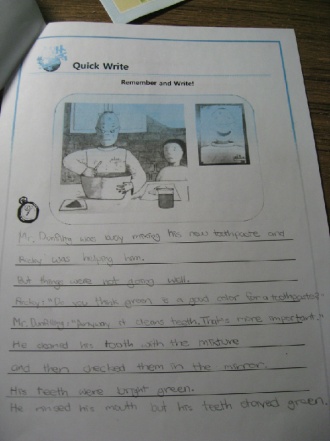 Quick Write
Remember and Write!
Mr. Dumpling was busy making his new toothpaste and
Ricky was helping him.
But things were not going well.
Ricky: "Do you think green is a good color for a toothpaste?"
Mr. Dumpling: "Anyway, it cleans teeth. That's more important."
He cleaned his teeth with the mixture
and then checked them in the mirror.
His teeth were bright green.
He rinsed his mouth but his teeth stayed green.